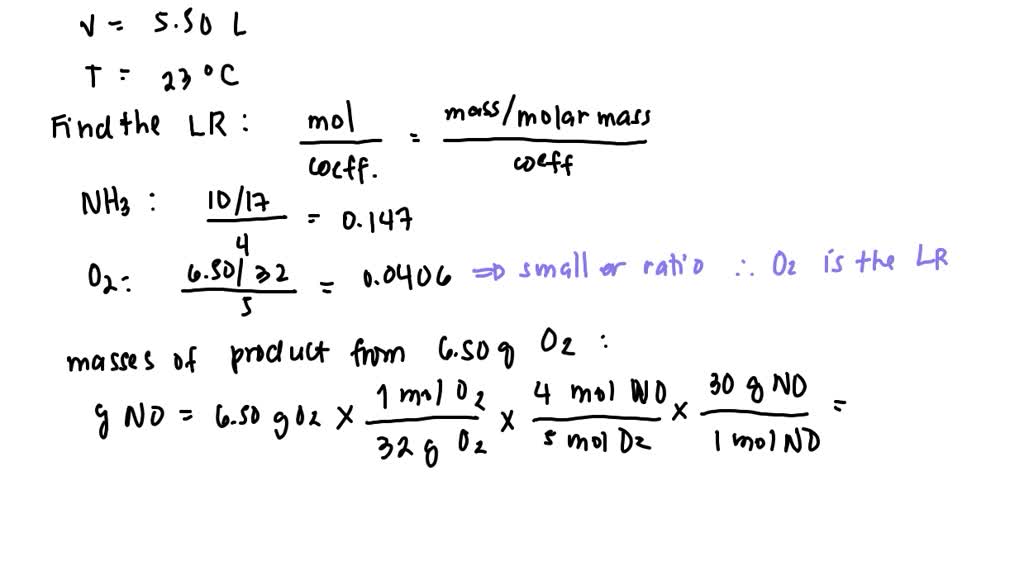 V = 5.50 L
T = 23 °C
Find the LR : mol / coeff. = mass/molar mass / coeff
NH3 : 10/17 / 4 = 0.147
O2 : 6.50/32 / 5 = 0.0406 ⇒ smaller ratio ∴ O2 is the LR
masses of product from 6.50 g O2 :
g NO = 6.50 g O2 × 1 mol O2 / 32 g O2 × 4 mol NO / 5 mol O2 × 30 g NO / 1 mol NO =